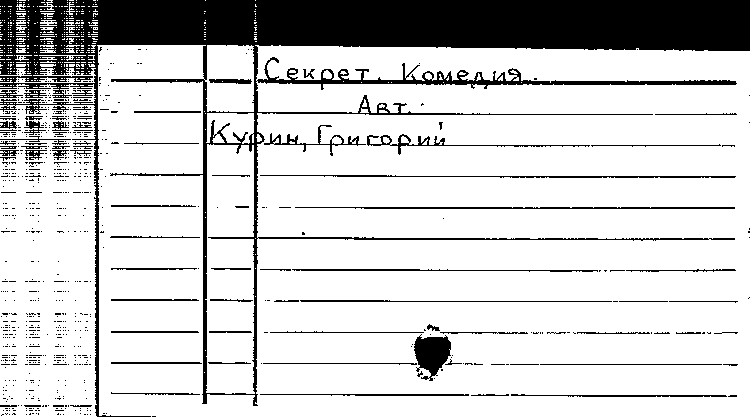 Секрет. Комедия.
Авт.
Курин, Григорий